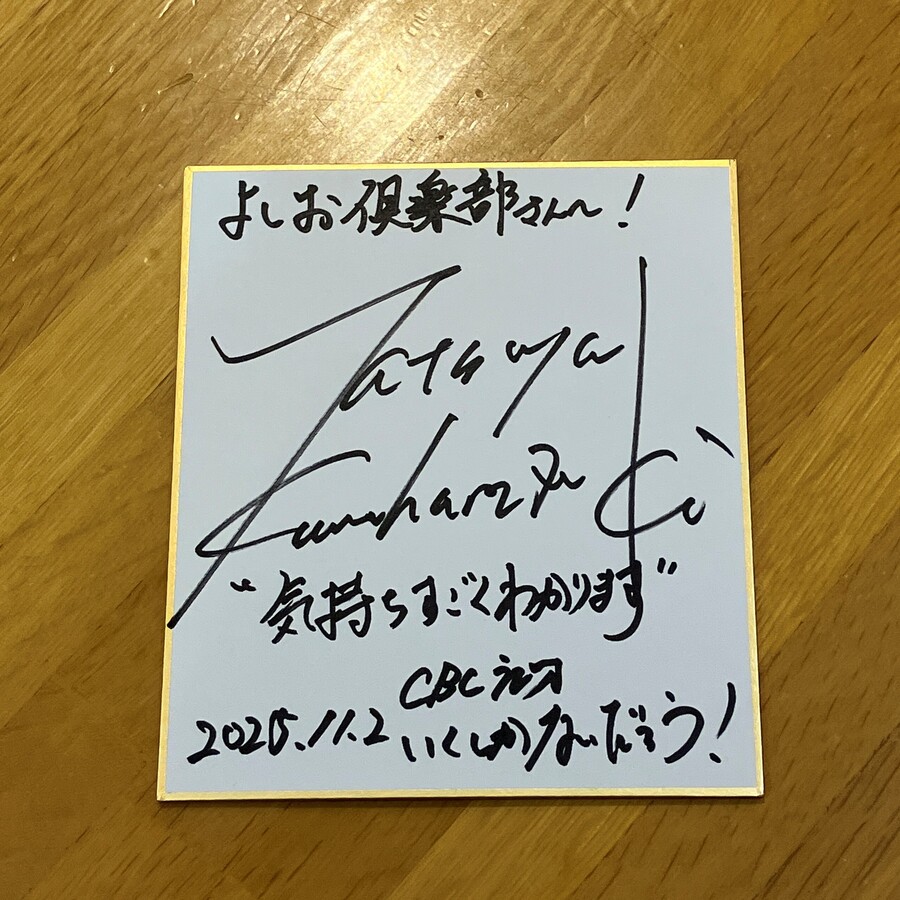 よしお倶楽部さんへ!
Tatsuya
Kumaharazaki
"気持ちすごくわかります"
CBCラジオ
2025.11.2 いくしかないだろう!